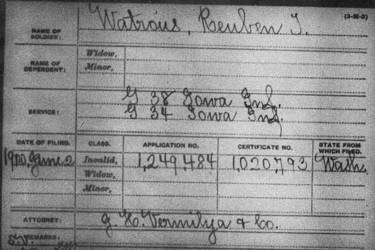 Watrous, Reuben T.
(3-M-2)
NAME OF SOLDIER:
NAME OF DEPENDENT:
Widow,
Minor,
SERVICE:
G 38 Iowa Inf.
G 34 Iowa Inf.
DATE OF FILING.
CLASS.
APPLICATION NO.
CERTIFICATE NO.
STATE FROM WHICH FILED.
1900 June 2
Invalid,
1,249,484
1,020,793
Wash.
Widow,
Minor,
ATTORNEY:
Vermilya & Co.
REMARKS: